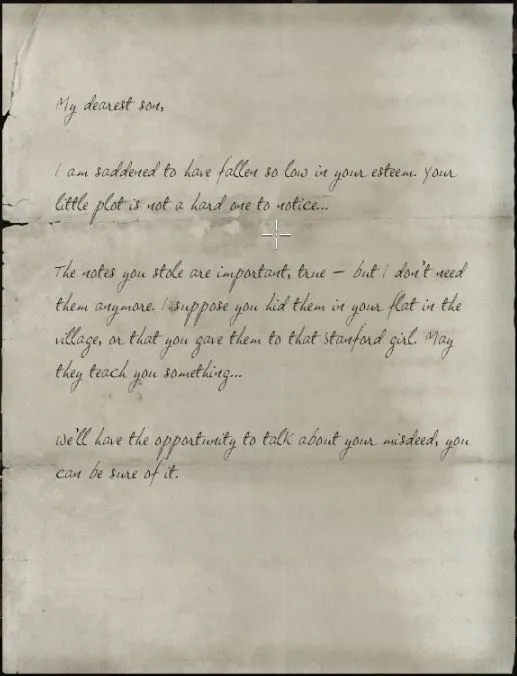 My dearest son,
I am saddened to have fallen so low in your esteem. Your
little plot is not a hard one to notice...
The notes you stole are important, true – but I don't need
them anymore. I suppose you hid them in your flat in the
village, or that you gave them to that Stanford girl. May
they teach you something...
We'll have the opportunity to talk about your misdeed, you
can be sure of it.